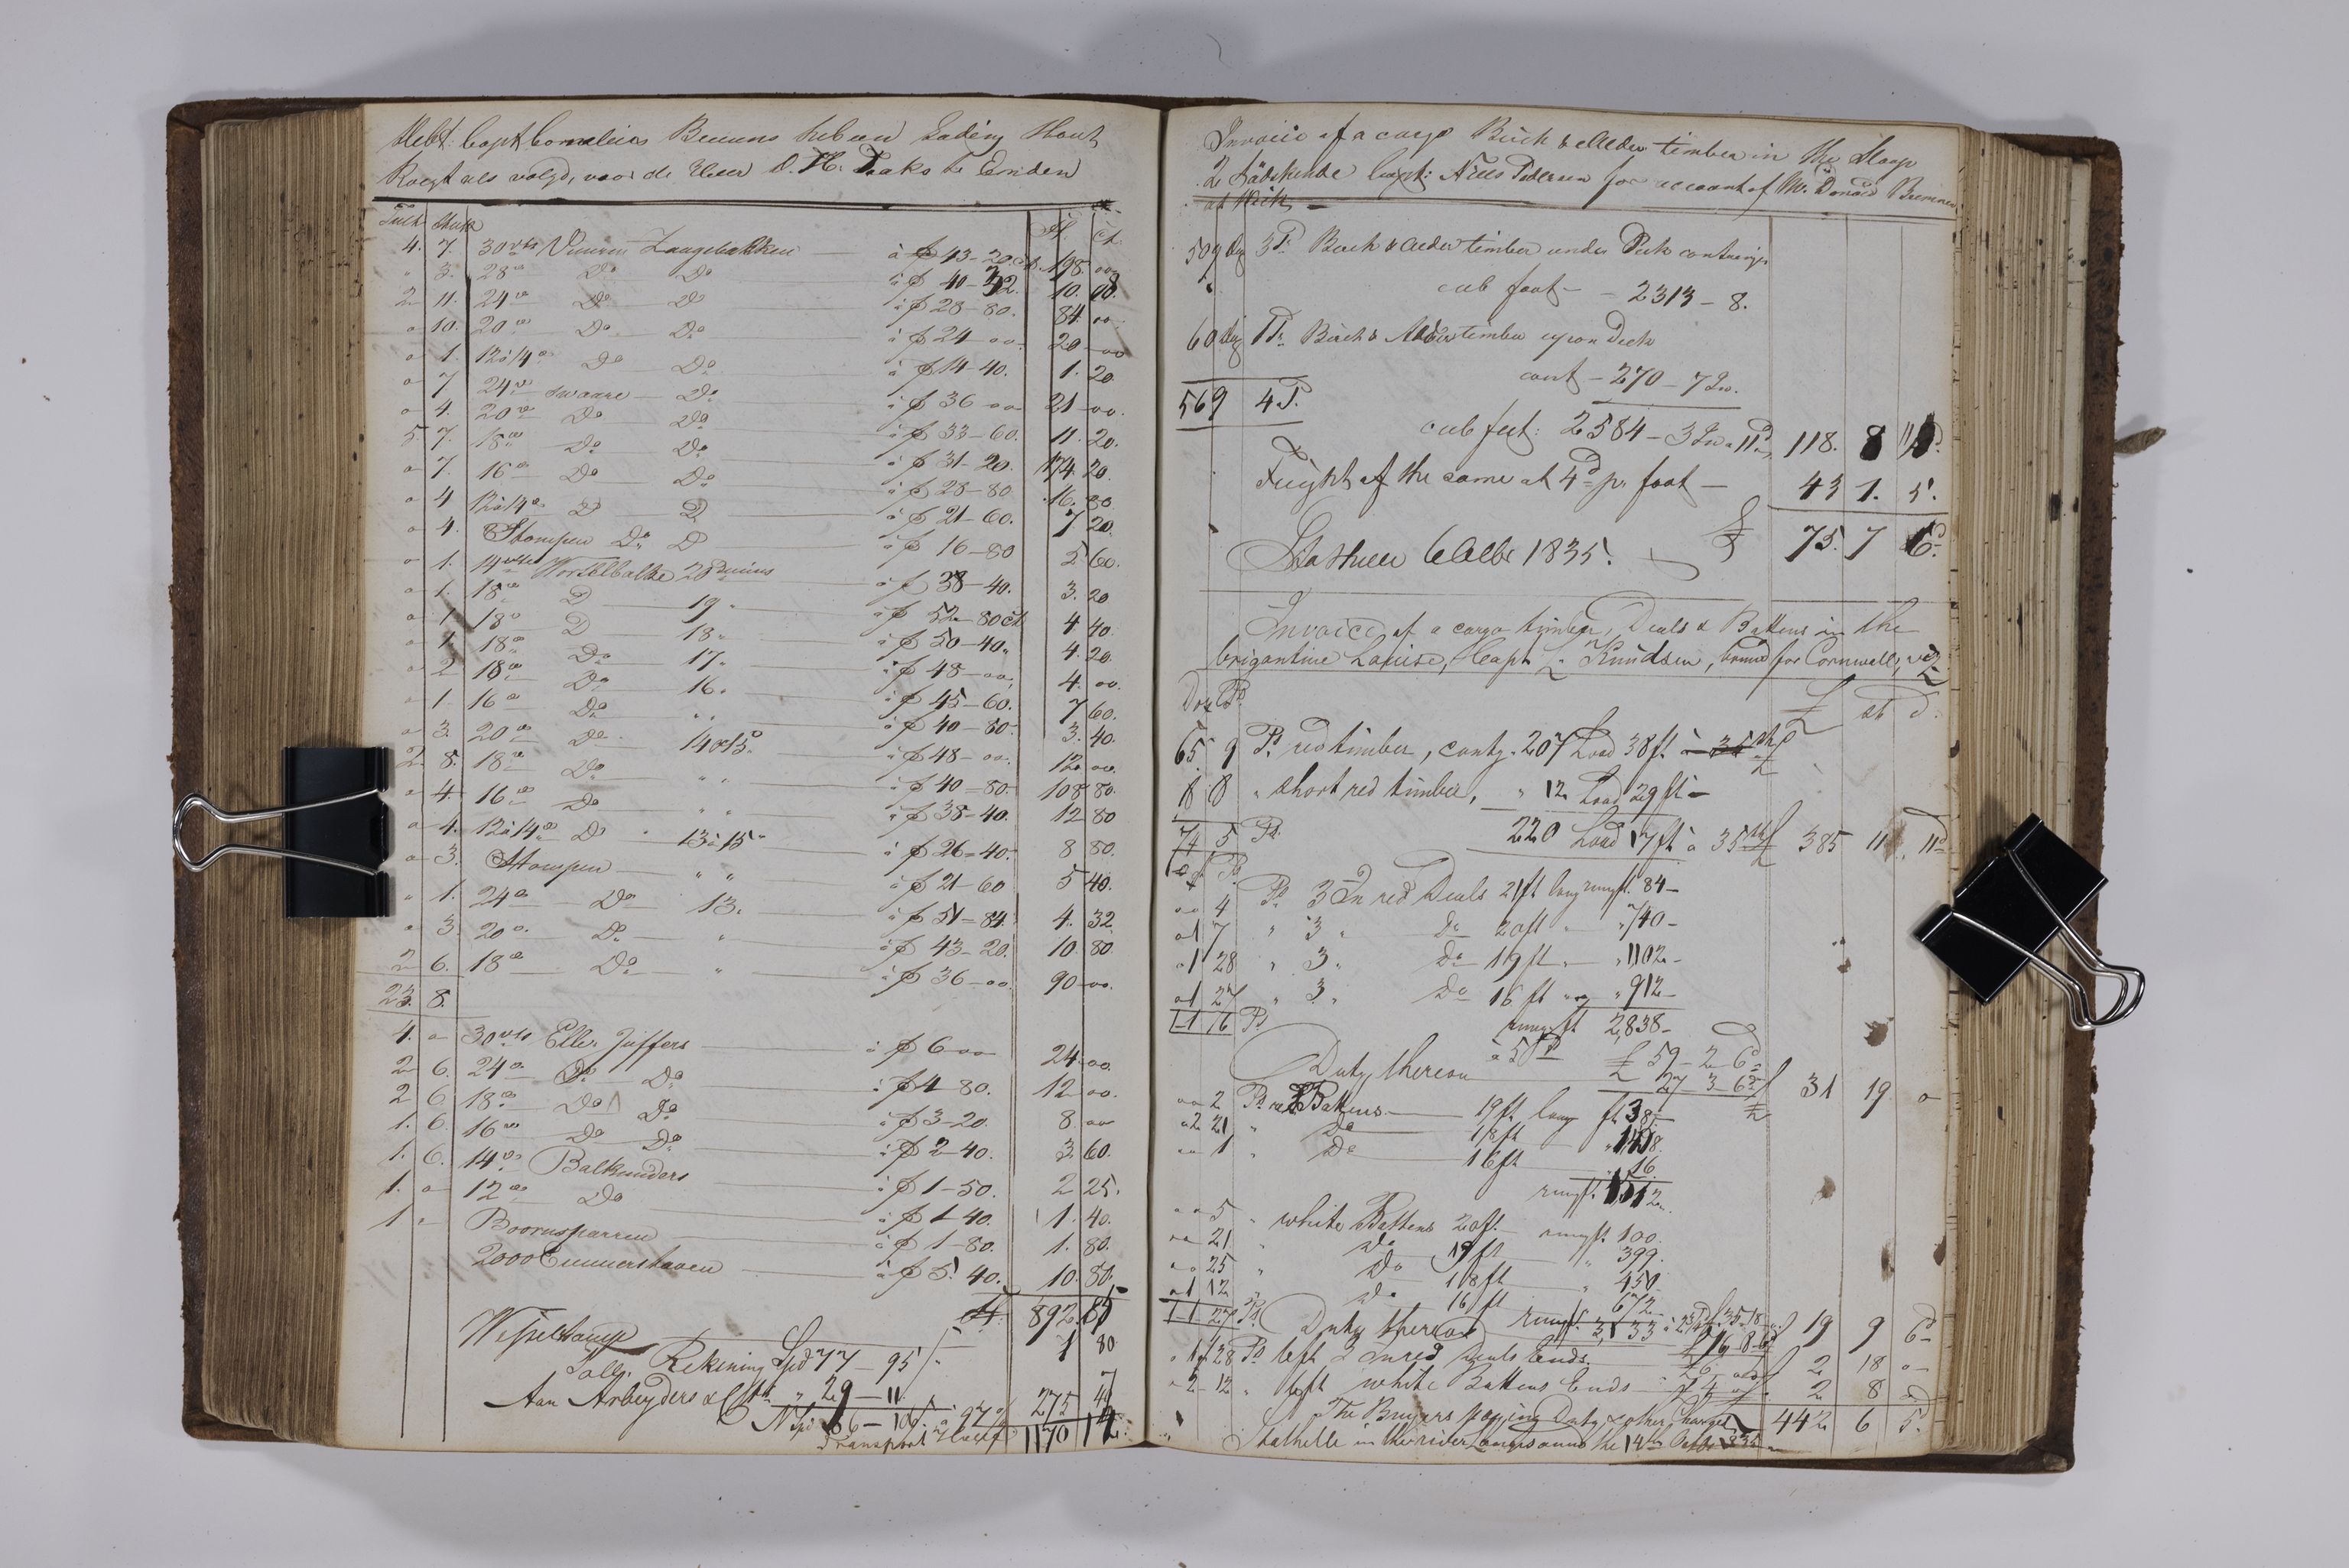 Hebt Capt Cornelius Beuuns heb een Lading Hout
als volgd, voor de Heer D. H. Taaks te Emden
Tult Stuk ct.
4. 7. 30 vts Vuuren Zaagebalken à f 43-20 ct. 198. 00
" 3. 28 " Do Do à f 40-32. 10. 08.
2 11. 24 " Do Do à f 28-80. 84. 00
" 10. 20 " Do Do à f 24-00. 20-00
" 1. 12 à 14 " Do Do à f 14-40. 1. 20.
" 7 24 " swaare Do à f 36-00 21-00.
" 4. 20 " Do Do à f 33-60. 11. 20.
5. 7. 18 " Do Do à f 31-20. 174. 20.
" 7. 16 " Do Do à f 28-80 16. 80
" 4 12 à 14 " D D à f 21-60. 7 20.
" 4. Stompen Do D à f 16-80 5 60.
" 1. 14 vts Wortelbalke 20 à f 38-40. 3. 20
" 1. 18 " D 19 " à f 52-80 ct 4 40.
" 1 18 " D 18 " à f 50-40. 4. 20.
" 1. 18 " Do 17 " à f 48-00. 4. 00.
" 2 18 " Do 16. à f 45-60. 7 60.
" 1. 16 " Do " " à f 40-80- 3. 40.
" 3. 20 " Do 14 à 15 " à f 48-00. 12. 00.
2 8. 18 " Do " " à f 40-80. 108 80.
" 4. 16 " Do " " à f 38-40. 12 80
" 4. 12 à 14 " Do 13 à 15 " à f 26-40. 8 80.
" 3. Stompen " " à f 21-60 5 40.
" 1. 24 " Do 13. à f 51-84. 4. 32
" 3. 20 " Do " à f 43-20. 10. 80.
2 6. 18 " Do " à f 36-00. 90-00.
23. 8.
4. " 30 vts Elle Juffers à f 6-00 24-00.
2 6. 24 " Do Do à f 4-80. 12 00.
2 6 18 " Do Do à f 3-20. 8. 00
1. 6. 16 " Do Do à f 2-40. 3. 60.
1. 6. 14 " Balkunders à f 1-50. 2 25.
1. " 12 " Do à f 1-40. 1. 40.
1 " Boomsparren à f 1-80. 1. 80.
2000 Emmerstaven à f 5. 40. 10. 80.
f 892. 85
Wesselkamp 1 80
Rekining Spd 77-95
Aan Arbeyders & " 29-11.
N Spd à 97 275 47
Transport 1170 12.
Invoice of a cargo Birch & Alder timber in the Sloop
2 Södskende Capt: Niels Pedersen for account of Mr. Donald Bremner
at Wick.
509 3 T. Birch & Alder timber under Deck containg.
cub foot - 2313-8.
60 1 T. Birch & Alder timber upon Deck
cont - 270-7 In.
569 4 T.
cub feet: 2584-3 In à 11d 118. 8 11d.
Freight of the same at 4d pr. foot - 43 1. 5.
Stathelle 6 Octbr 1835. £ 75. 7 6d.
Invoice of a cargo timber, Deals & Battens in the
brigantine Louise, Capt L. Knudsen, bound for Cornwell, viz
Doz Ps £ st d.
65 9 Ps red timber, contg. 207 Load 38 ft à 35 sh
8 8 " short red timber, " 12 Load 29 ft -
74 5 Ps 220 Load 17 ft à 35 sh £ 385 11. 11d
" " 4 Ps 3 In red Deals 21 ft long rung ft. 84-
" 1 7 " 3 " Do 20 ft " " 740-
" 1 28 " 3 " Do 19 ft " " 1102-
" 1 27 " 3 " Do 16 ft " " 912-
1-1 76 Ps rung ft 2,838-
à 5d £ 59-2-6d
Duty thereon 27 3 6d £ 31 19 0
" " 2 Ps red Battens 19 ft long ft 38.
" 2 21 " Do 18 ft
" " 1 " Do 16 ft 16
rung ft. 1512.
" " 5 " white Battens 20 ft. rung ft. 100.
" " 21 " Do 19 ft " 399.
" " 25 " Do 18 ft " 450.
" 1 12 " Do 16 ft 672
Duty thereon rung ft. 3,133 £ 16-8-6 19 9 6d
" 1 28 Ps left 3 In red Deals Ends 2 18 0
" 2-12 " left white Battens Ends 2 8
The Buyers paying Duty & other Charges 442 6 5.
Stathelle in the river Langesound the 14th Octbr 1835